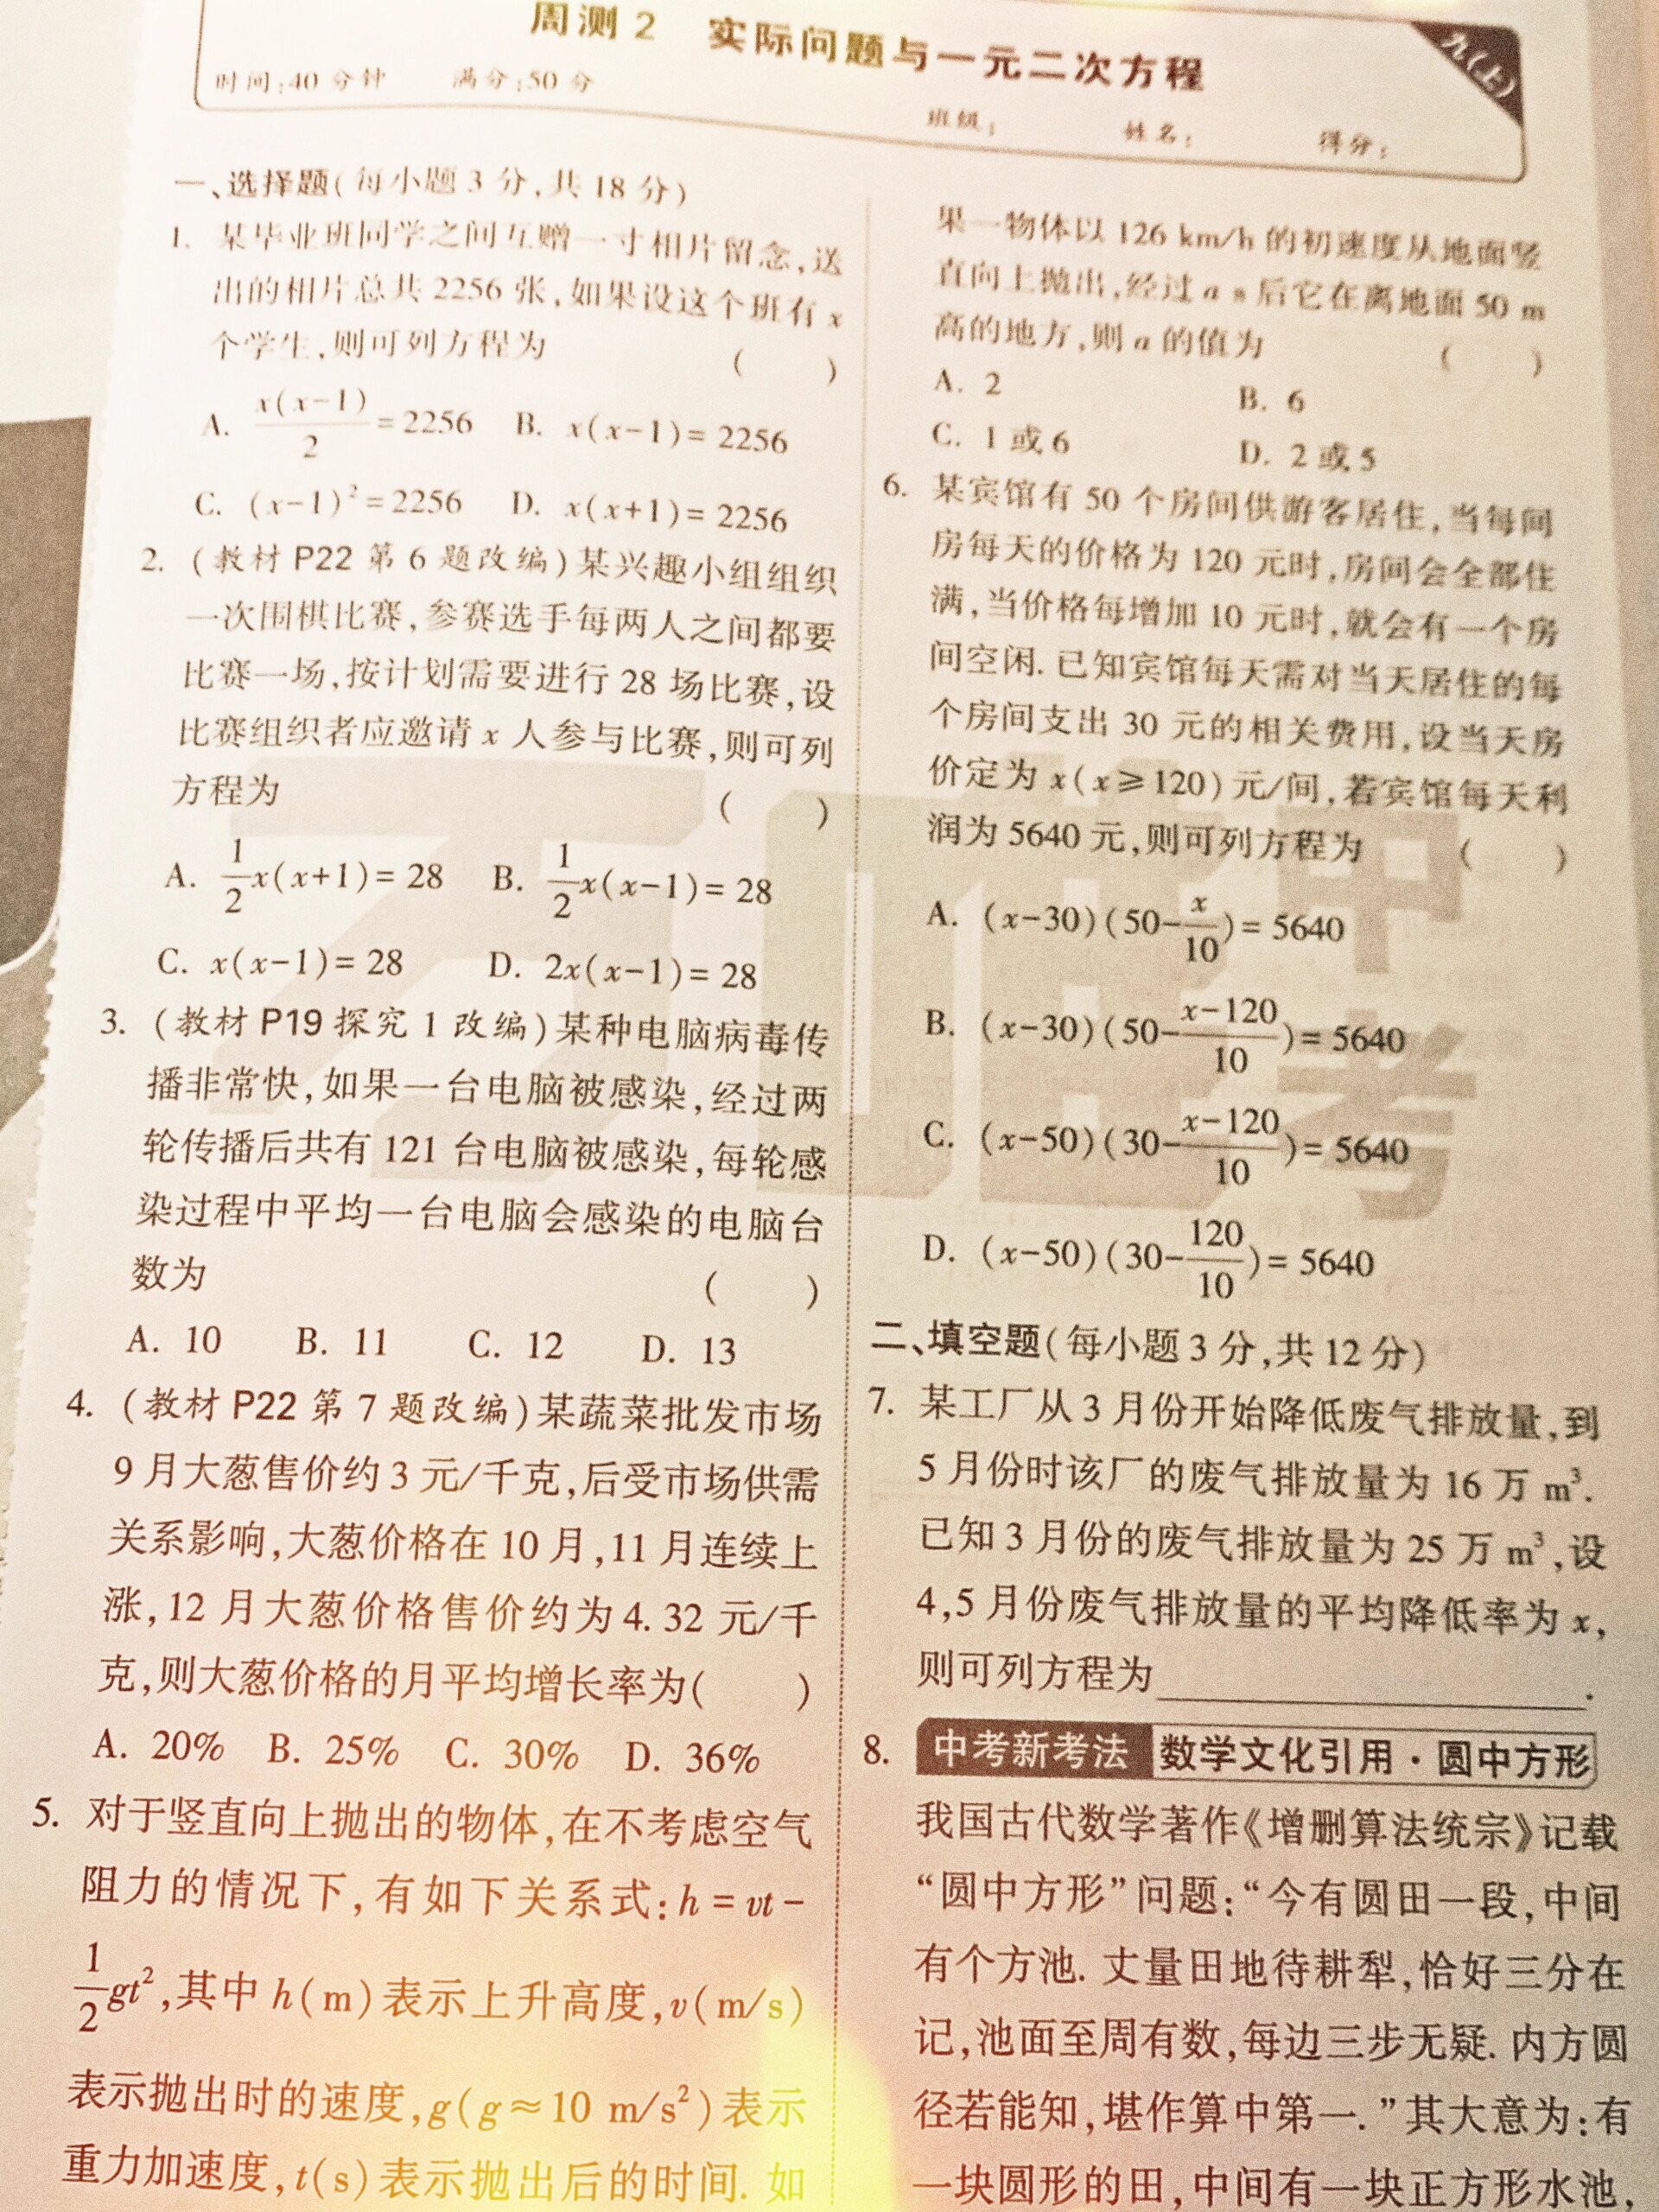 周测2 实际问题与一元二次方程
九(上)
时间:40分钟 满分:50分
班级: 姓名: 得分:
一、选择题(每小题3分,共18分)
1. 某毕业班同学之间互赠一寸相片留念,送
出的相片总共2256张,如果设这个班有x
个学生,则可列方程为 ( )
A. x(x-1)/2=2256 B. x(x-1)=2256
C. (x-1)²=2256 D. x(x+1)=2256
2. (教材P22第6题改编)某兴趣小组组织
一次围棋比赛,参赛选手每两人之间都要
比赛一场,按计划需要进行28场比赛,设
比赛组织者应邀请x人参与比赛,则可列
方程为 ( )
A. 1/2x(x+1)=28 B. 1/2x(x-1)=28
C. x(x-1)=28 D. 2x(x-1)=28
3. (教材P19探究1改编)某种电脑病毒传
播非常快,如果一台电脑被感染,经过两
轮传播后共有121台电脑被感染,每轮感
染过程中平均一台电脑会感染的电脑台
数为 ( )
A. 10 B. 11 C. 12 D. 13
4. (教材P22第7题改编)某蔬菜批发市场
9月大葱售价约3元/千克,后受市场供需
关系影响,大葱价格在10月,11月连续上
涨,12月大葱价格售价约为4.32元/千
克,则大葱价格的月平均增长率为( )
A. 20% B. 25% C. 30% D. 36%
5. 对于竖直向上抛出的物体,在不考虑空气
阻力的情况下,有如下关系式:h=vt-
1/2gt²,其中h(m)表示上升高度,v(m/s)
表示抛出时的速度,g(g≈10 m/s²)表示
重力加速度,t(s)表示抛出后的时间.如
果一物体以126 km/h的初速度从地面竖
直向上抛出,经过a s后它在离地面50 m
高的地方,则a的值为 ( )
A. 2 B. 6
C. 1或6 D. 2或5
6. 某宾馆有50个房间供游客居住,当每间
房每天的价格为120元时,房间会全部住
满,当价格每增加10元时,就会有一个房
间空闲.已知宾馆每天需对当天居住的每
个房间支出30元的相关费用,设当天房
价定为x(x≥120)元/间,若宾馆每天利
润为5640元,则可列方程为 ( )
A. (x-30)(50-x/10)=5640
B. (x-30)(50-(x-120)/10)=5640
C. (x-50)(30-(x-120)/10)=5640
D. (x-50)(30-120/10)=5640
二、填空题(每小题3分,共12分)
7. 某工厂从3月份开始降低废气排放量,到
5月份时该厂的废气排放量为16万m³.
已知3月份的废气排放量为25万m³,设
4,5月份废气排放量的平均降低率为x,
则可列方程为____________.
8. 中考新考法 数学文化引用·圆中方形
我国古代数学著作《增删算法统宗》记载
“圆中方形”问题:“今有圆田一段,中间
有个方池.丈量田地待耕犁,恰好三分在
记,池面至周有数,每边三步无疑.内方圆
径若能知,堪作算中第一.”其大意为:有
一块圆形的田,中间有一块正方形水池,